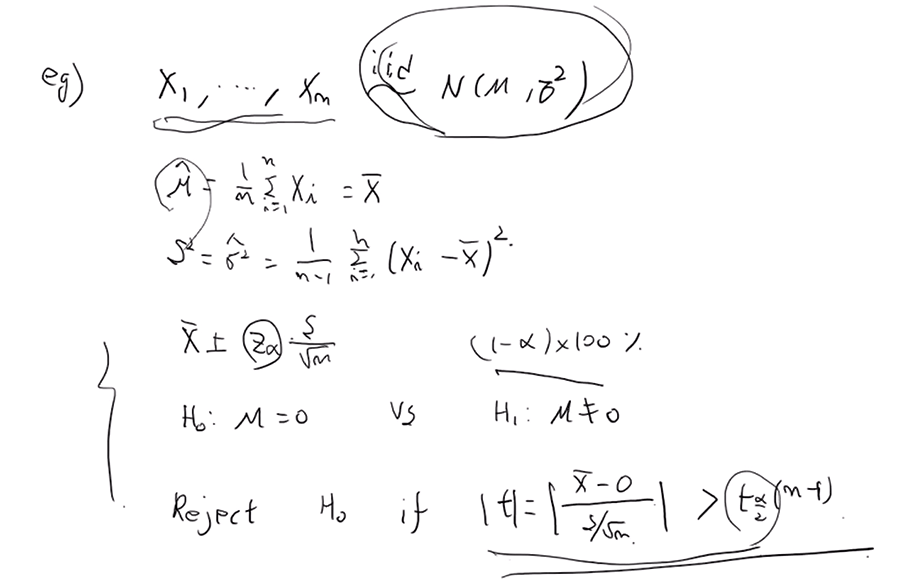 eg) X₁, ⋯, Xₙ iid N(μ, σ²)
μ̂ = 1/n Σⁿᵢ₌₁ Xᵢ = X̄
S² = σ̂² = 1/(n-1) Σⁿᵢ₌₁ (Xᵢ - X̄)².
X̄ ± z_α · S/√n (1-α)×100 %
H₀: μ = 0 vs H₁: μ ≠ 0
Reject H₀ if |t| = |(X̄ - 0)/(S/√n)| > t_{α/2}(n-1)